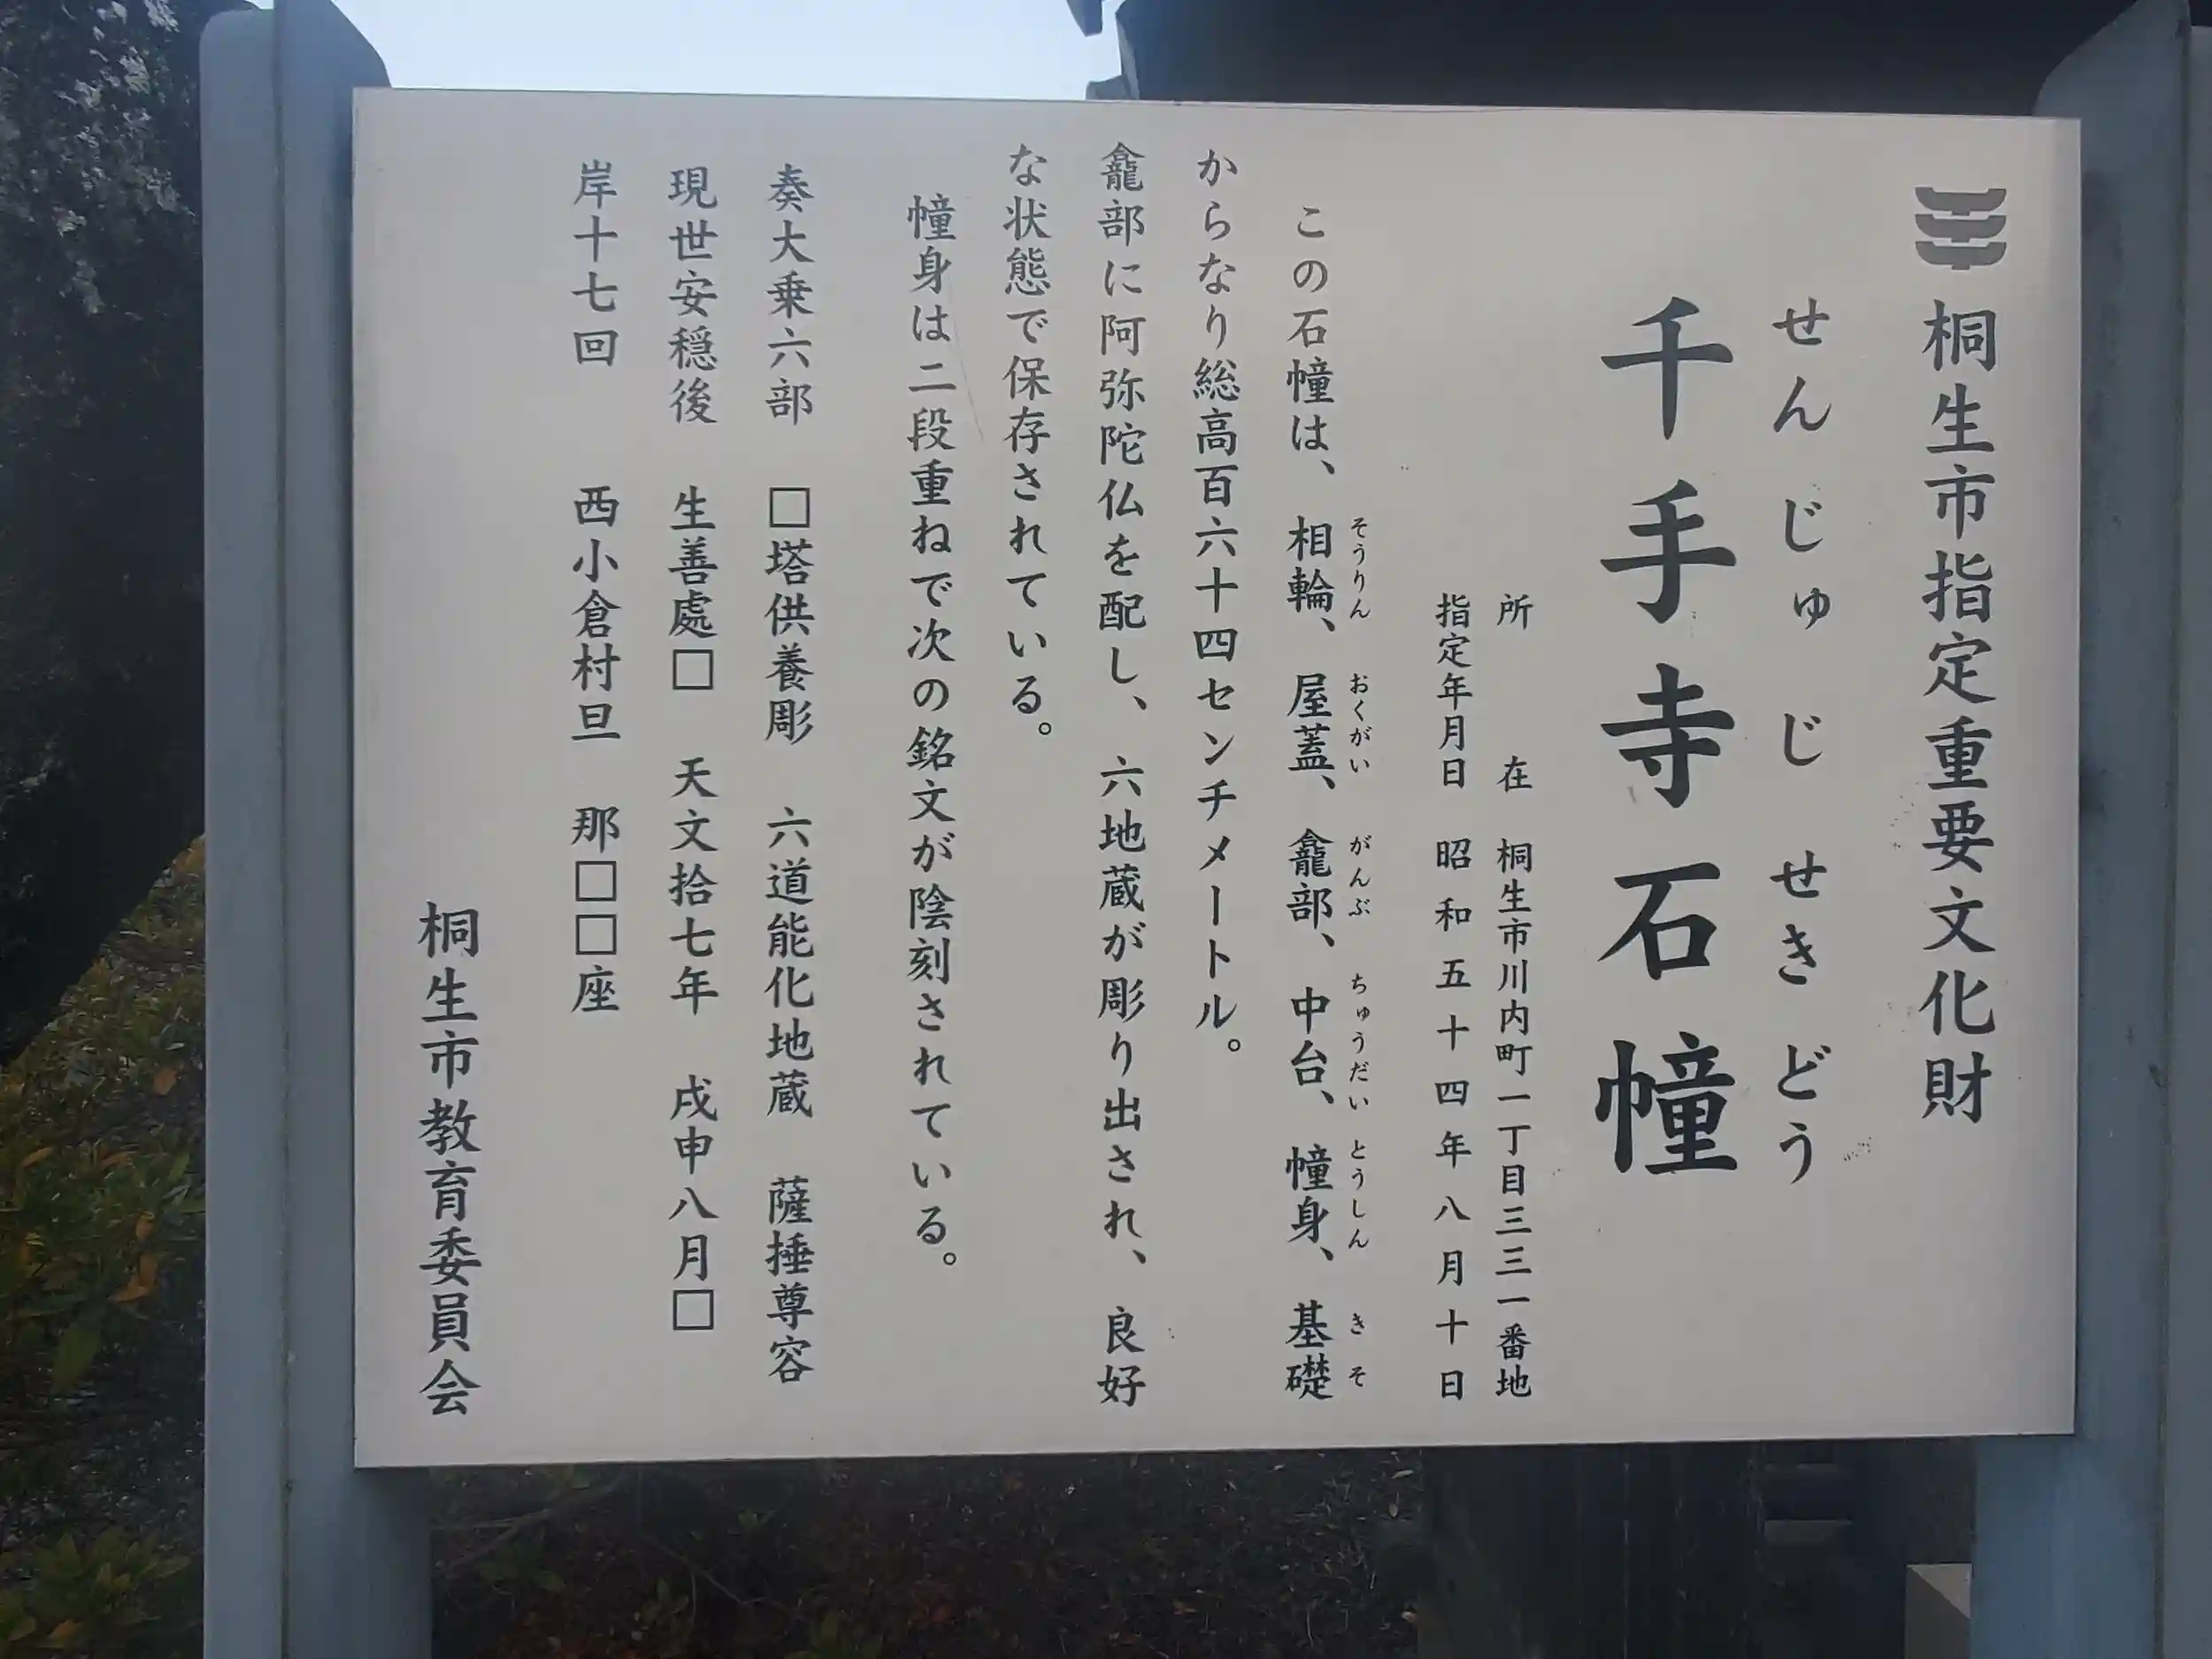 桐生市指定重要文化財
せんじゅじせきどう
千手寺石幢
所在 桐生市川内町一丁目三三一番地
指定年月日 昭和五十四年八月十日
この石幢は、相輪、屋蓋、龕部、中台、幢身、基礎
そうりん おくがい がんぶ ちゅうだい とうしん きそ
からなり総高百六十四センチメートル。
龕部に阿弥陀仏を配し、六地蔵が彫り出され、良好
な状態で保存されている。
幢身は二段重ねで次の銘文が陰刻されている。
奏大乗六部 □塔供養彫 六道能化地蔵 薩捶尊容
現世安穏後 生善處□ 天文拾七年 戌申八月□
岸十七回 西小倉村旦 那□□座
桐生市教育委員会